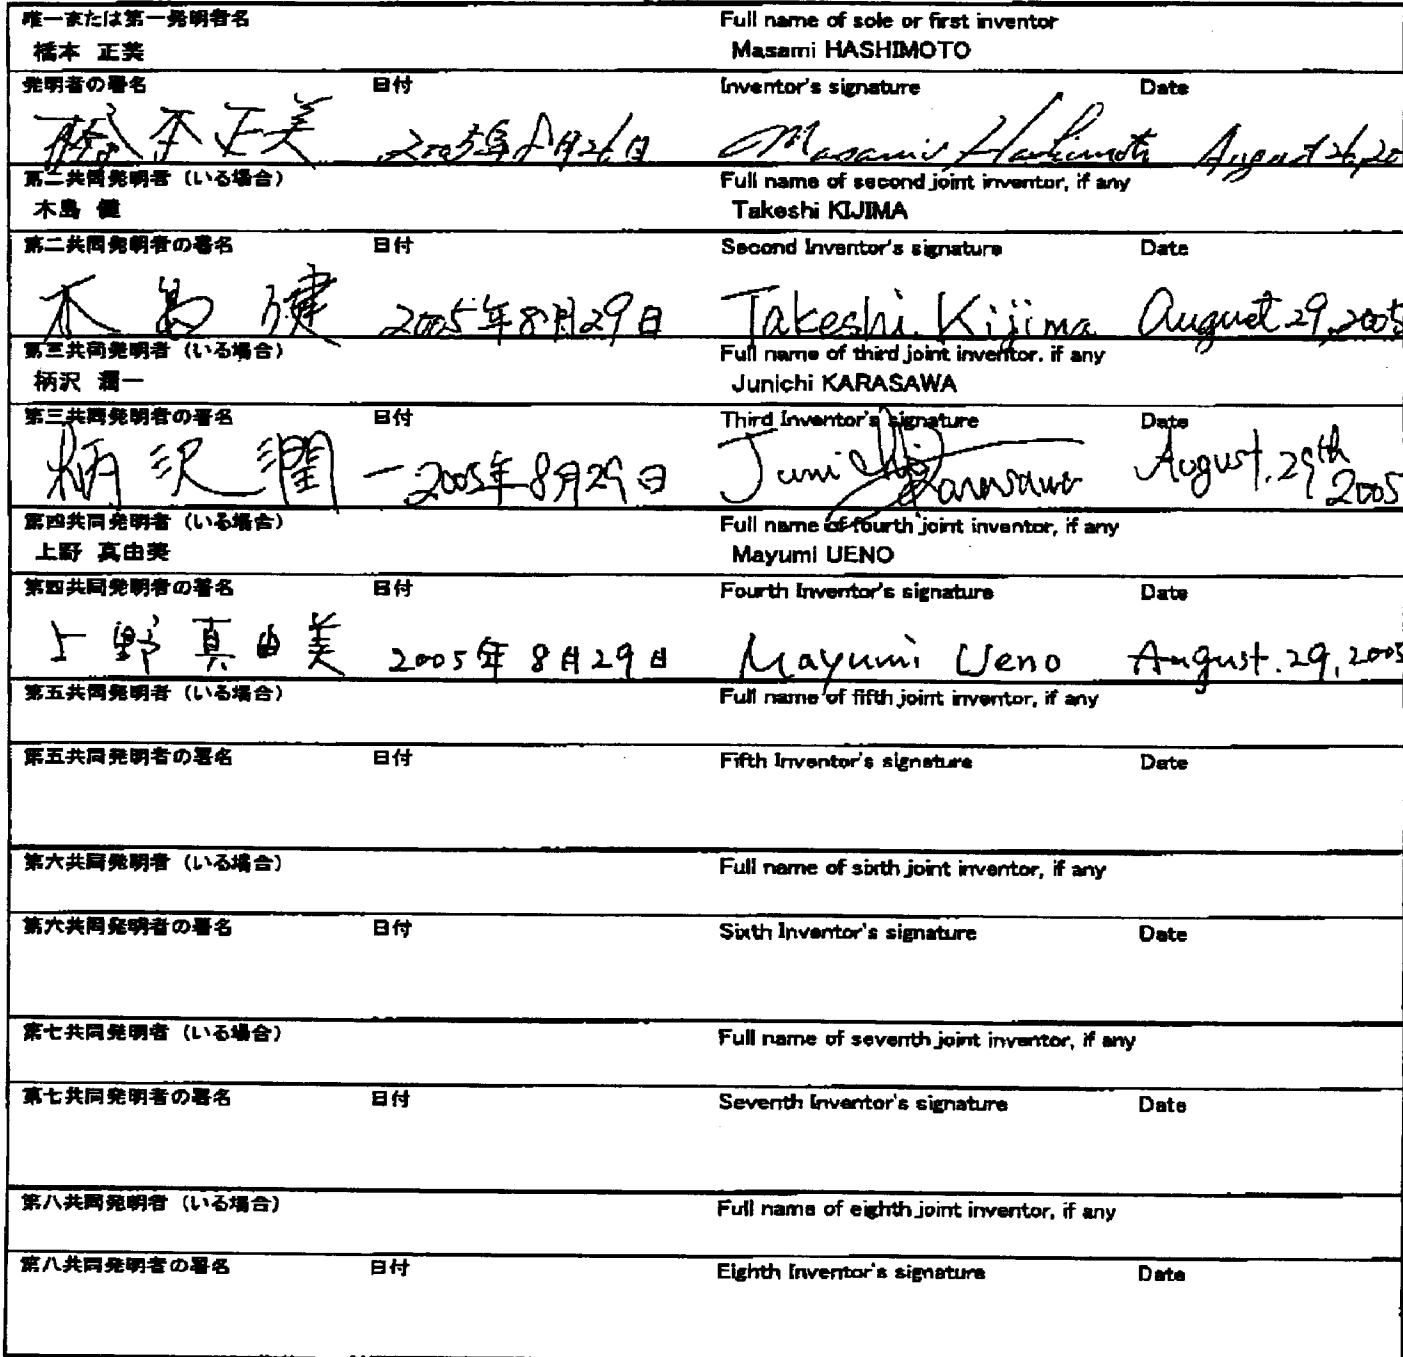 唯一または第一発明者名 Full name of sole or first inventor
橋本 正美 Masami HASHIMOTO
発明者の署名 日付 Inventor's signature Date
橋本正美 2005年8月26日 Masami Hashimoto August 26, 20
第二共同発明者（いる場合） Full name of second joint inventor, if any
木島 健 Takeshi KIJIMA
第二共同発明者の署名 日付 Second Inventor's signature Date
木島健 2005年8月29日 Takeshi Kijima August 29, 2005
第三共同発明者（いる場合） Full name of third joint inventor, if any
柄沢 潤一 Junichi KARASAWA
第三共同発明者の署名 日付 Third Inventor's signature Date
柄沢潤一 2005年8月29日 Junichi Karasawa August. 29th 2005
第四共同発明者（いる場合） Full name of fourth joint inventor, if any
上野 真由美 Mayumi UENO
第四共同発明者の署名 日付 Fourth Inventor's signature Date
上野真由美 2005年8月29日 Mayumi Ueno August. 29, 2005
第五共同発明者（いる場合） Full name of fifth joint inventor, if any
第五共同発明者の署名 日付 Fifth Inventor's signature Date
第六共同発明者（いる場合） Full name of sixth joint inventor, if any
第六共同発明者の署名 日付 Sixth Inventor's signature Date
第七共同発明者（いる場合） Full name of seventh joint inventor, if any
第七共同発明者の署名 日付 Seventh Inventor's signature Date
第八共同発明者（いる場合） Full name of eighth joint inventor, if any
第八共同発明者の署名 日付 Eighth Inventor's signature Date